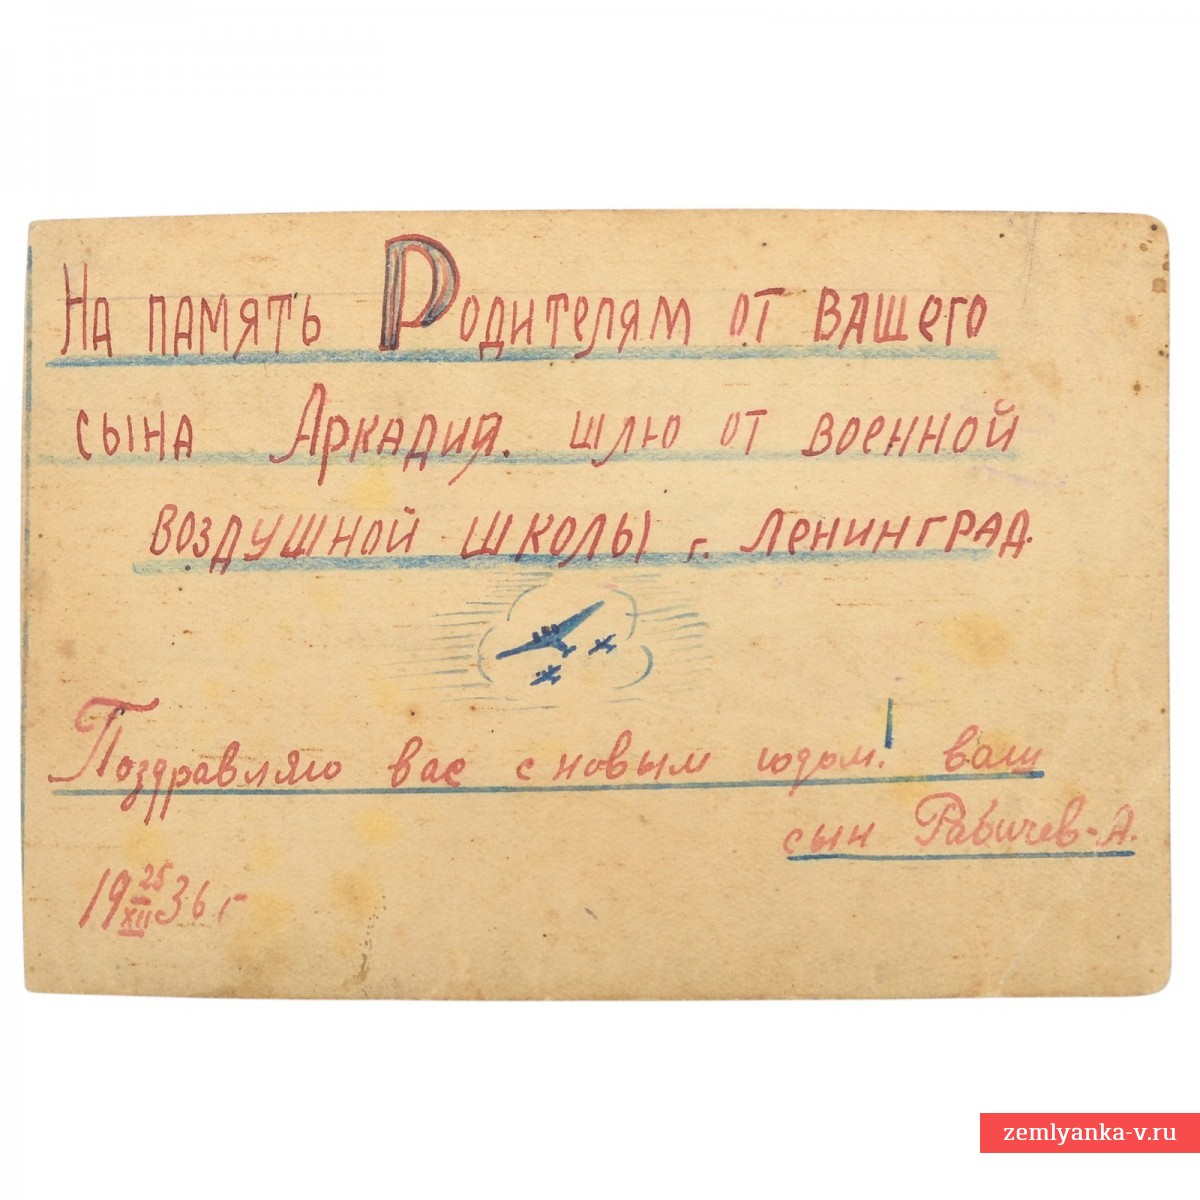 На память Родителям от вашего
сына Аркадия. шлю от военной
воздушной школы г. Ленинград.
Поздравляю вас с новым годом! ваш
сын Рабичев-А.
19 25/XII 36 г
zemlyanka-v.ru